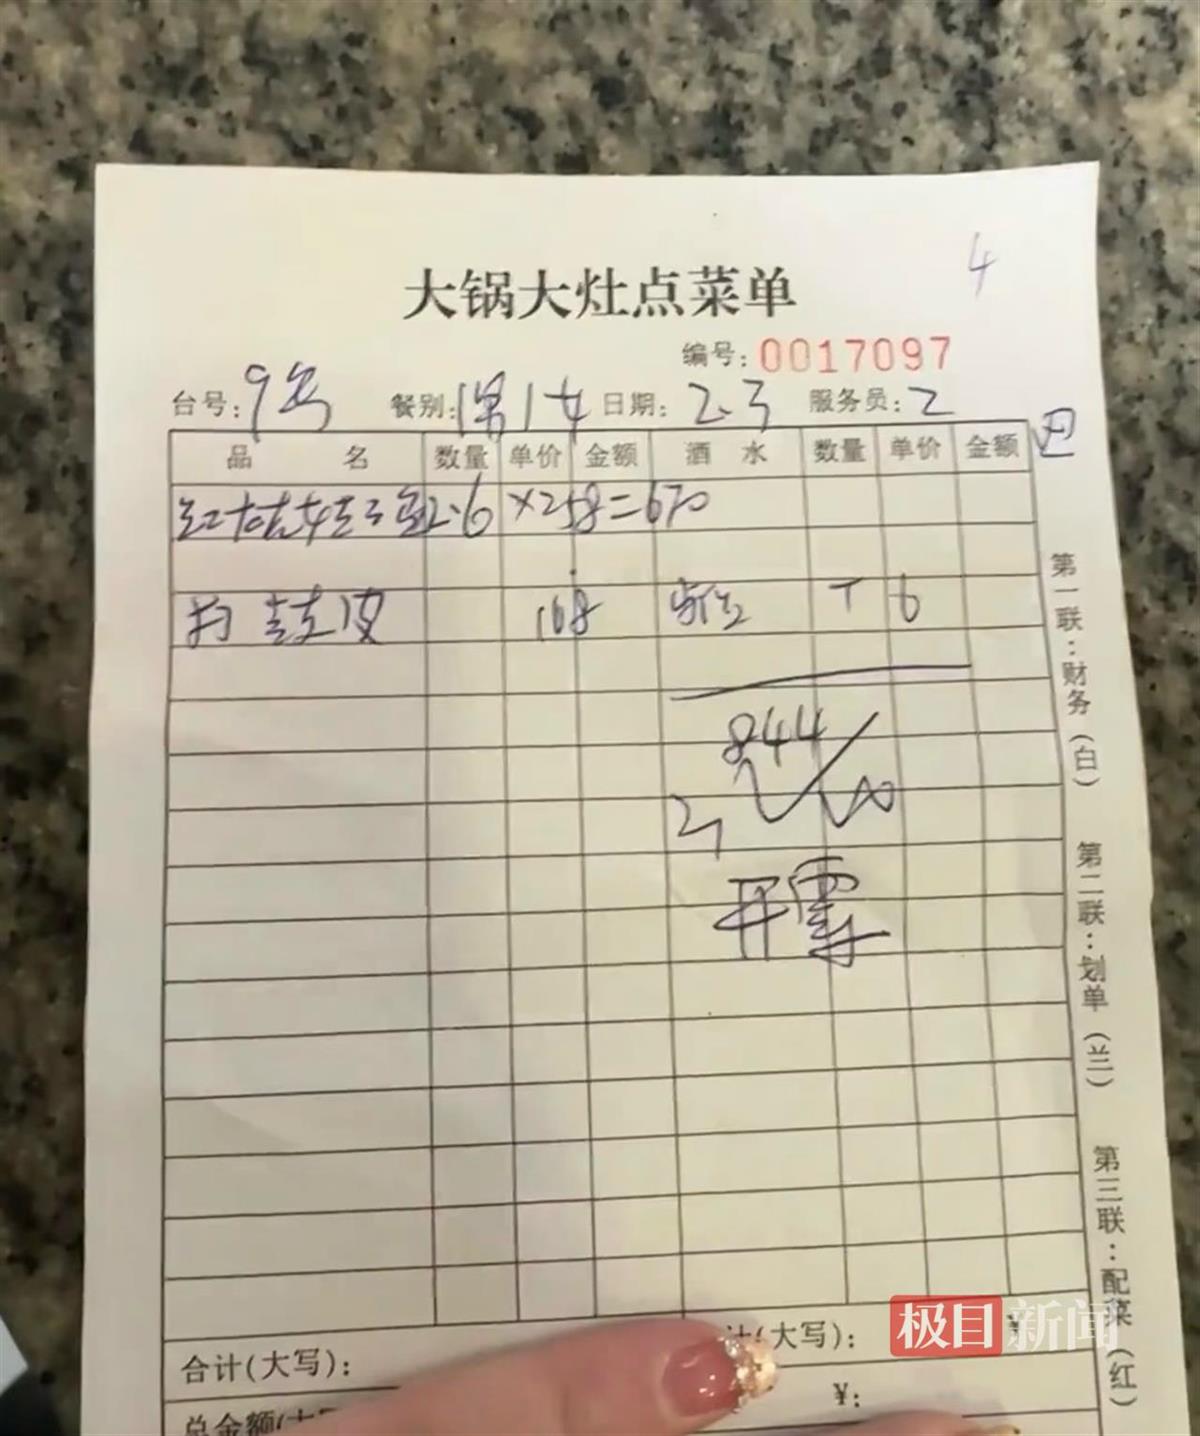 4
大锅大灶点菜单
编号: 0017097
台号: 9号 餐别: 日期: 2.3 服务员: 2
品 名 数量 单价 金额 酒 水 数量 单价 金额
2.6 ×258=670
皮 168 6
844
合计(大写):
计(大写):
¥:
总金额(大
第一联:财务(白)
第二联:划单(兰)
第三联:配菜(红)
极目新闻